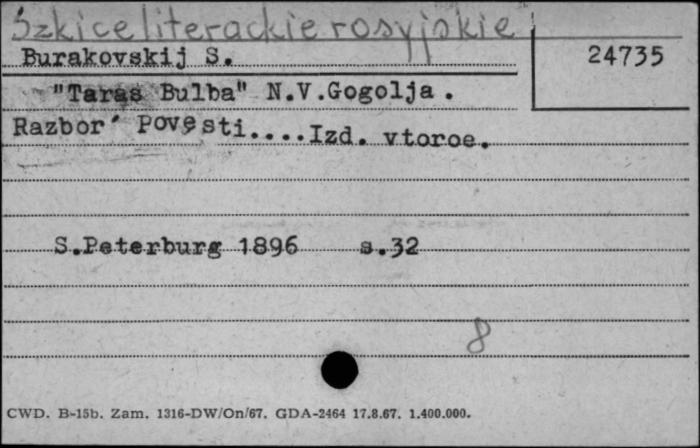 Szkice literackie rosyjskie
Burakovskij S.
24735
"Taras Bulba" N.V.Gogolja.
Razbor' Povesti....Izd. vtoroe.
S.Peterburg 1896 s.32
8
CWD. B-15b. Zam. 1316-DW/On/67. GDA-2464 17.8.67. 1.400.000.